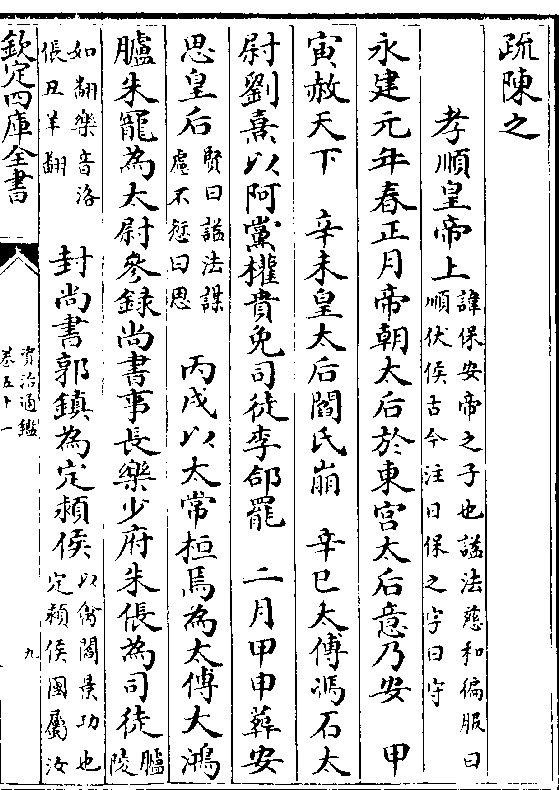 疏陳之
孝順皇帝上諱保安帝之子也謚法慈和徧服曰順伏侯古今注曰保之字曰守
永建元年春正月帝朝太后於東宫太后意乃安　甲
寅赦天下　辛未皇太后閻氏崩　辛巳太傅馮石太
尉劉熹以阿黨權貴免司徒李郃罷　二月甲申葬安
思皇后賢曰謚法謀慮不愆曰思　丙戌以太常桓焉為太傅大鴻
臚朱寵為太尉參録尚書事長樂少府朱倀為司徒臚陵
如翻樂音洛倀丑羊翻　封尚書郭鎮為定頴侯以禽閻景功也定頴侯國屬汝
欽定四庫全書
資治通鑑
卷五十一
九